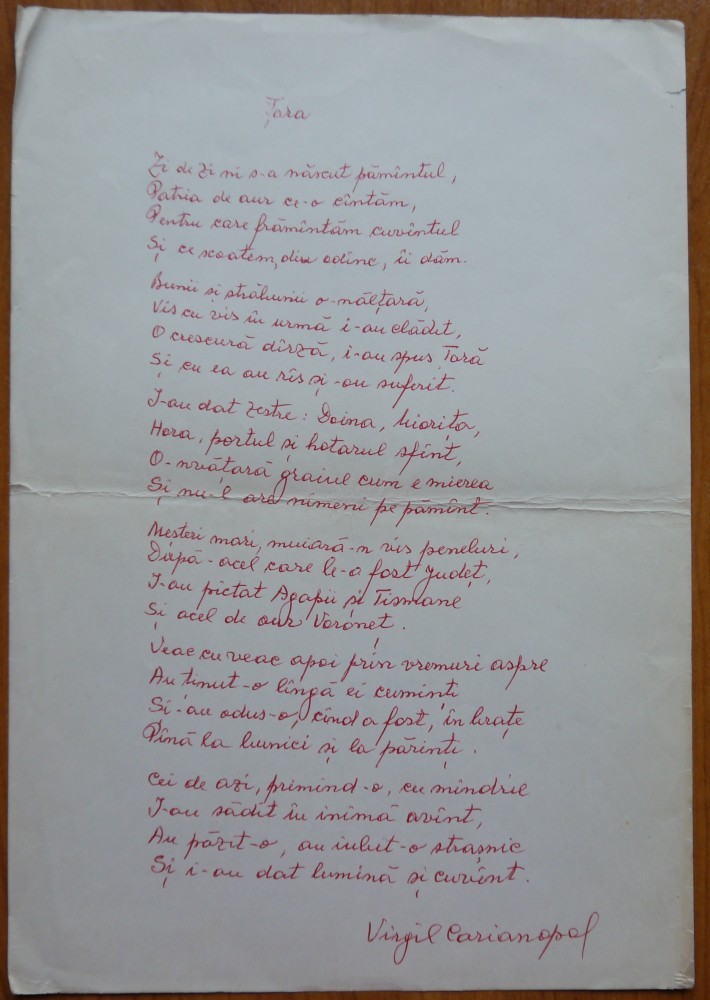 Țara
Zi de zi ni s-a născut pămîntul,
Patria de aur ce-o cîntăm,
Pentru care frămîntăm cuvîntul
Și ce scoatem, din adînc, îi dăm.
Bunii și străbunii o-nălțară,
Vis cu vis în urmă i-au clădit,
O crescură dîrză, i-au spus Țară
Și cu ea au rîs și-au suferit.
I-au dat zestre: Doina, Miorița,
Hora, portul și hotarul sfînt,
O-nvățară graiul cum e mierea
Și nu-l are nimeni pe pămînt.
Meșteri mari, muiară-n vis peneluri,
După-acel care le-a fost județ,
I-au pictat Agapii și Tismane
Și acel de aur Voroneț.
Veac cu veac apoi prin vremuri aspre
Au ținut-o lîngă ei cuminți
Și-au adus-o, cînd a fost, în brațe
Pînă la bunici și la părinți.
Cei de azi, primind-o, cu mîndrie
I-au sădit în inimă avînt,
Au păzit-o, au iubit-o strașnic
Și i-au dat lumină și cuvînt.
Virgil Carianopol